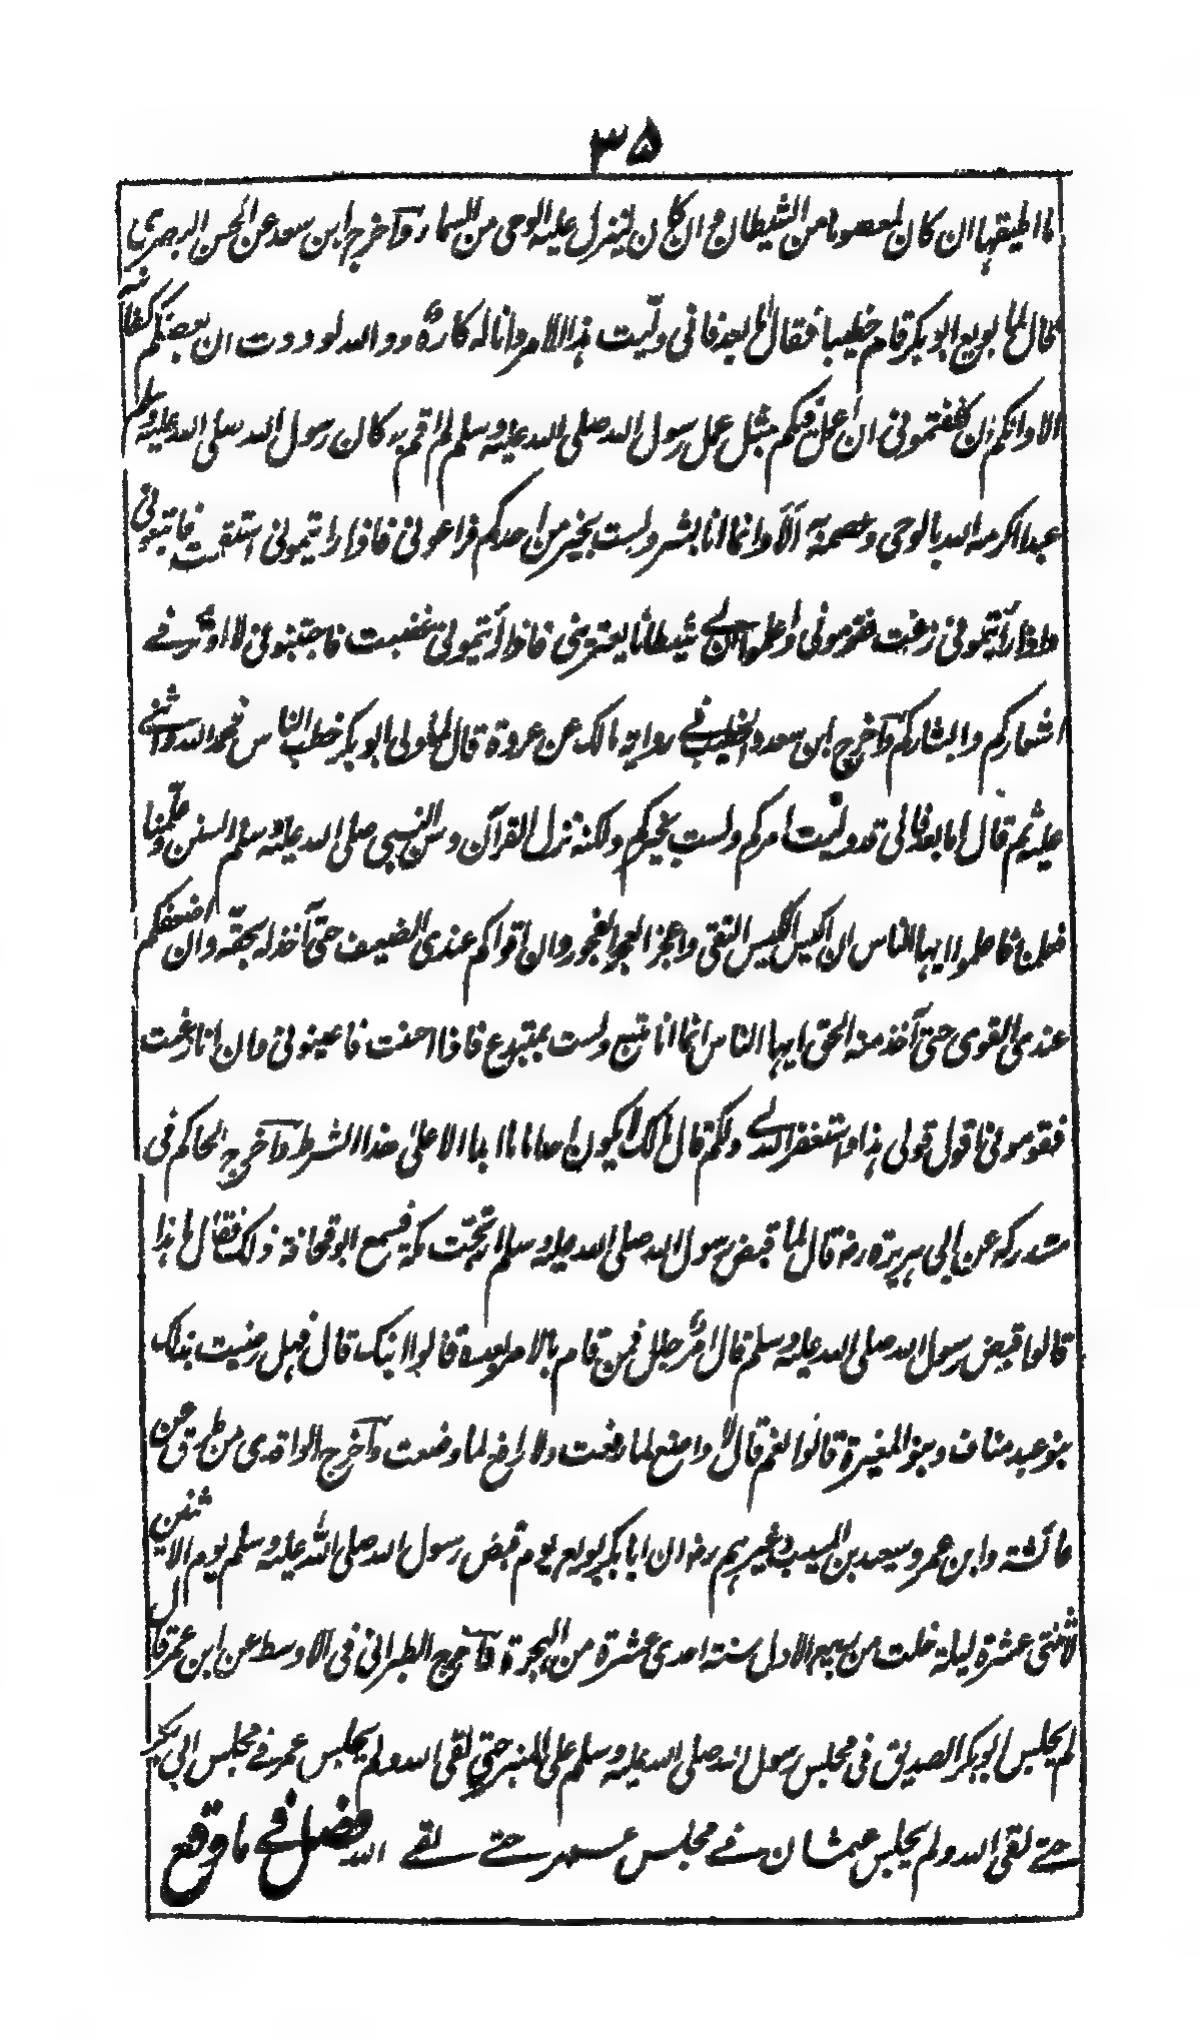 ٣۵
ما اطيقها ان كان لمعصوما من الشيطان وان كان لينزل عليه الوحى من السماء وآخرج ابن سعد عن الحسن البصرى
قال لما بويع ابو بكر قام خطيبا فقال اما بعد فانى وليت هذا الامر وانا له كاره ووالله لوددت ان بعضكم كفانيه
الا وانكم ان كلفتمونى ان اعمل فيكم بمثل عمل رسول الله صلى الله عليه وسلم لم اقم به كان رسول الله صلى الله عليه وسلم
عبدا اكرمه الله بالوحى وعصمه به الا وانما انا بشر ولست بخير من احدكم فراعونى فاذا رايتمونى استقمت فاتبعونى
واذا رأيتمونى زغت فقومونى واعلموا ان لى شيطانا يعترينى فاذا رأيتمونى غضبت فاجتنبونى لا اوثر فى
اشعاركم وابشاركم وآخرج ابن سعد والخطيب فى رواية مالك عن عروة قال لما ولى ابو بكر خطب الناس فحمد الله واثنى
عليه ثم قال اما بعد فانى قد وليت امركم ولست بخيركم ولكنه نزل القرآن وسن النبى صلى الله عليه وسلم السنن وعلمنا
فعلمنا فاعلموا ايها الناس ان اكيس الكيس التقى واعجز العجز الفجور وان اقواكم عندى الضعيف حتى آخذ له بحقه وان اضعفكم
عندى القوى حتى آخذ منه الحق ايها الناس انما انا متبع ولست بمبتدع فاذا احسنت فاعينونى وان انا زغت
فقومونى اقول قولى هذا واستغفر الله لى ولكم قال مالك لا يكون احد اماما ابدا الا على هذا الشرط وآخرج الحاكم فى
مستدركه عن ابى هريرة رضـ قال لما قبض رسول الله صلى الله عليه وسلم ارتجت مكة فسمع ابو قحافة ذلك فقال ما هذا
قالوا قبض رسول الله صلى الله عليه وسلم قال امر جلل فمن قام بالامر بعده قالوا ابنك قال فهل رضيت بذلك
بنو عبد مناف وبنو المغيرة قالوا نعم قال لا واضع لما رفعت ولا رافع لما وضعت وآخرج الواقدى من طرق عن
عائشه وابن عمر وسعيد بن المسيب وغيرهم رضـ ان ابا بكر بويع يوم قبض رسول الله صلى الله عليه وسلم يوم الاثنين
لاثنتى عشرة ليلة خلت من ربيع الاول سنة احدى عشرة من الهجرة وآخرج الطبرانى فى الاوسط عن ابن عمر قال
لم يجلس ابو بكر الصديق فى مجلس رسول الله صلى الله عليه وسلم على المنبر حتى لقى الله ولم يجلس عمر فى مجلس ابى بكر
حتى لقى الله ولم يجلس عثمان فى مجلس عمر حتى لقى الله فصل فى ما وقع